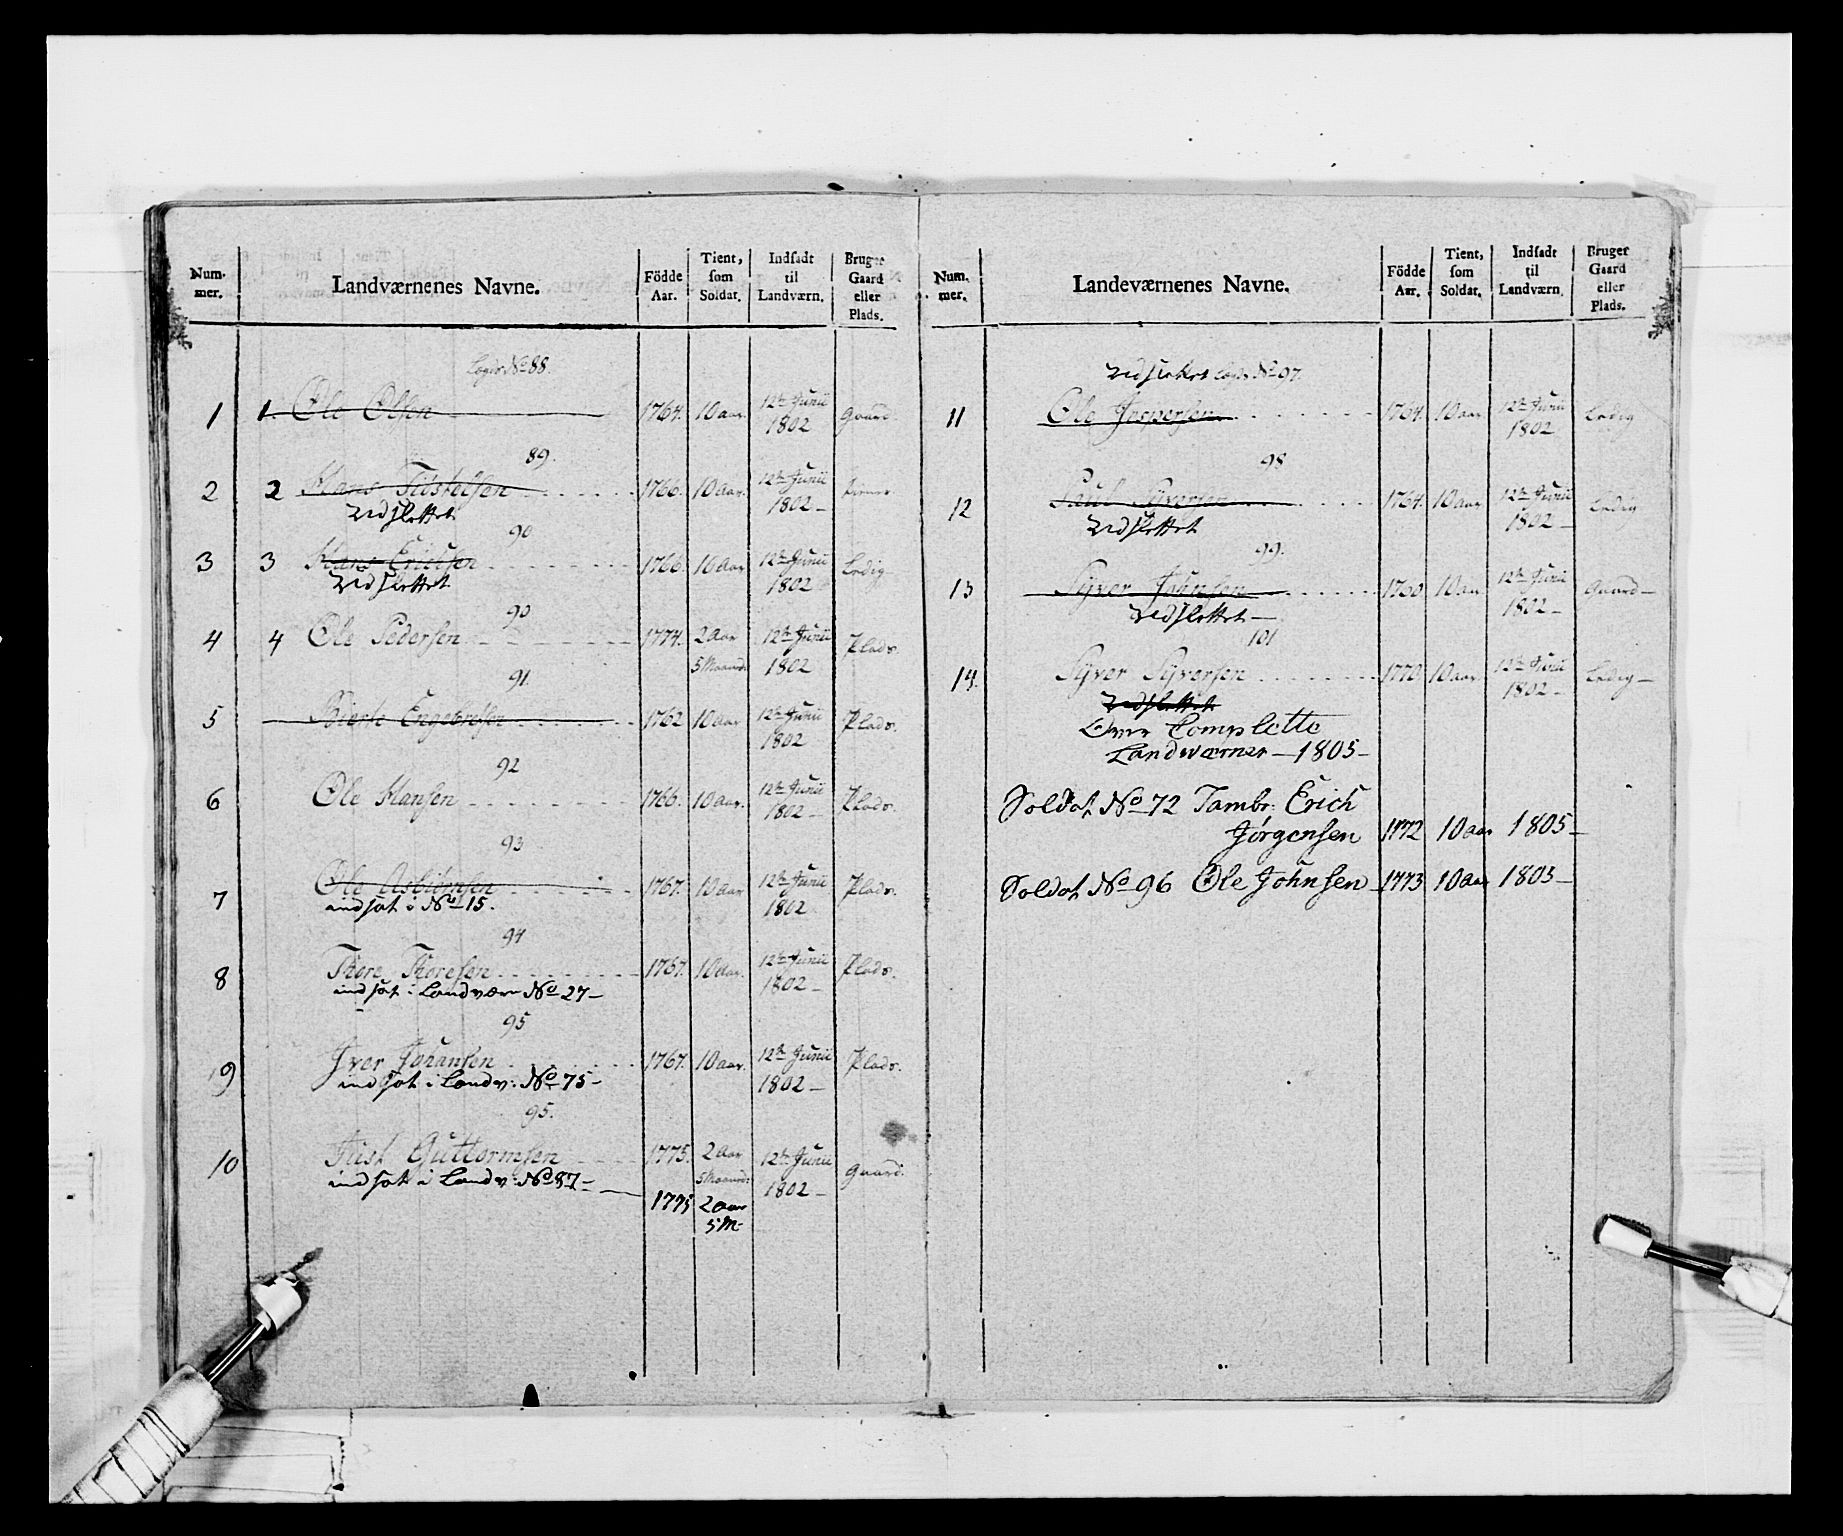 Num-
mer.
Landværnenes Navne.
Födde
Aar.
Tient,
som
Soldat.
Indsadt
til
Landværn.
Bruger
Gaard
eller
Plads.
No 88.
1 1. Ole Olsen 1764. 10 aar. 12te Junii 1802 Gaard.
89.
2 2 Hans 1766. 10 aar. 12te Junii 1802 –
Udslettet
90
3 3 Hans Erichsen 1766. 10 aar 12te Junii 1802 Ledig
Udslettet
90
4 4 Ole Pedersen 1774. 2 aar 5 Maaned: 12te Junii 1802 Plads.
91.
5 Engebretsen 1762 10 aar 12te Junii 1802 Plads.
92
6 Ole Hansen 1766. 10 aar. 12te Junii 1802 – Plads.
93
7 Ole Asbiönsen 1767. 10 aar 12te Junii 1802 Plads.
indsat i No 15.
94
8 Thore Thoresen 1767. 10 aar. 12te Junii 1802 – Plads.
indsat i Landværn No 27 –
95
9 Iver Johansen 1767. 10 aar. 12te Junii 1802 – Plads.
indsat i Landv: No 75 –
95.
10 Guttormsen 1775. 2 aar 5 Maaned: 12te Junii 1802 – Gaard.
indsat i Landv: No 87 –
1775 2 aar
5 M.
Num-
mer.
Landeværnenes Navne.
Födde
Aar.
Tient,
som
Soldat.
Indsadt
til
Landværn.
Bruger
Gaard
eller
Plads.
Udslettet No 97.
11 Ole Jespersen 1764. 10 aar 12te Junii 1802 Ledig
98
12 Paul Syversen 1764. 10 aar 12te Junii 1802 – Ledig
Udslettet
99.
13 Syver Johnsen 1760 10 aar 12te Junii 1802 – Gaard –
Udslettet –
101
14. Syver Syversen 1770 10 aar 12te Junii 1802 – Ledig –
Udslettet
Over Complette
Landværner – 1805 –
Soldat No 72 Tambr: Erich
Jørgensen 1772 10 aar 1805 –
Soldat No 96 Ole Johnsen – 1773 10 aar 1805 –